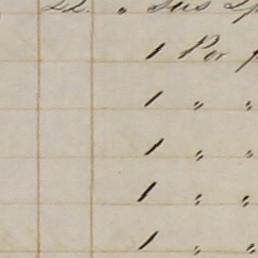 22. " Sus
1 Por
1 " "
1 " "
1 " "
1 " "